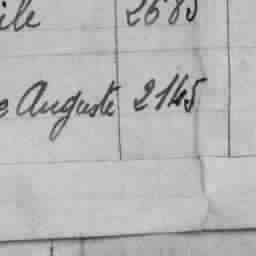 ile 2685
e Auguste 2145